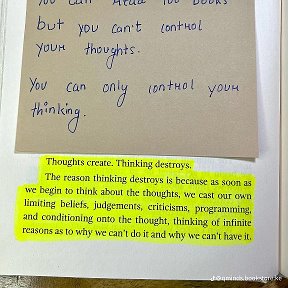 You can read 100 books
but you can't control
your thoughts.
You can only control your
thinking.
Thoughts create. Thinking destroys.
The reason thinking destroys is because as soon as
we begin to think about the thoughts, we cast our own
limiting beliefs, judgements, criticisms, programming,
and conditioning onto the thought, thinking of infinite
reasons as to why we can't do it and why we can't have it.
@qminds.bookstore.ke